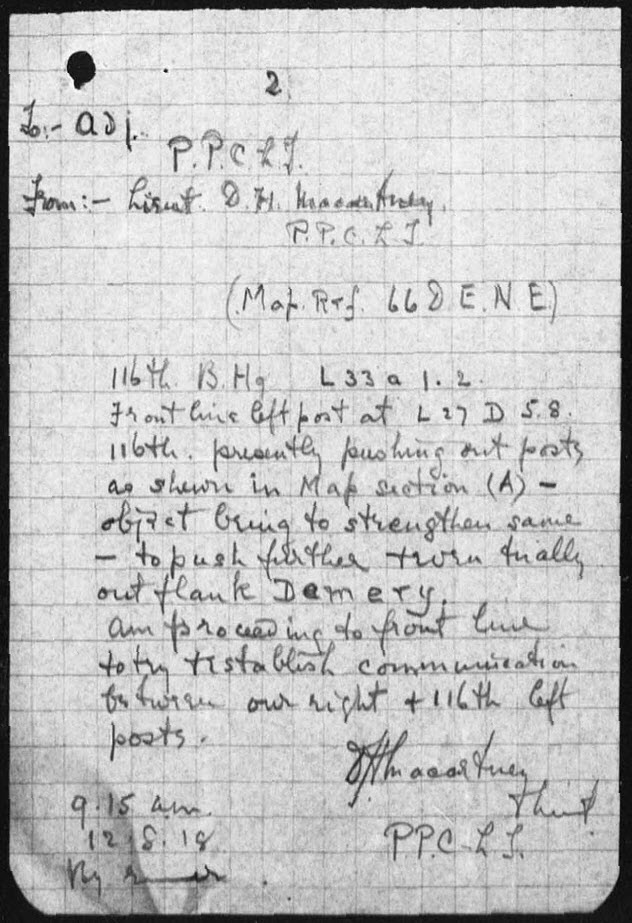 2.
To:- Adj.
P.P.C.L.I.
From:- Lieut. D. H. Macartney,
P.P.C.L.I
(Map. Ref. 66 D. E. N. E)
116th B. Hq L 33 a 1. 2.
Front line left post at L 27 D 5.8.
116th. presently pushing out posts
as shewn in Map section (A) —
object being to strengthen same
— to push further + eventually
out flank Damery.
Am proceeding to front line
to try + establish communication
between our right + 116th left
posts.
D H Macartney
Lieut.
P.P.C.L.I.
9.15 a.m.
12.8.18
By runner.